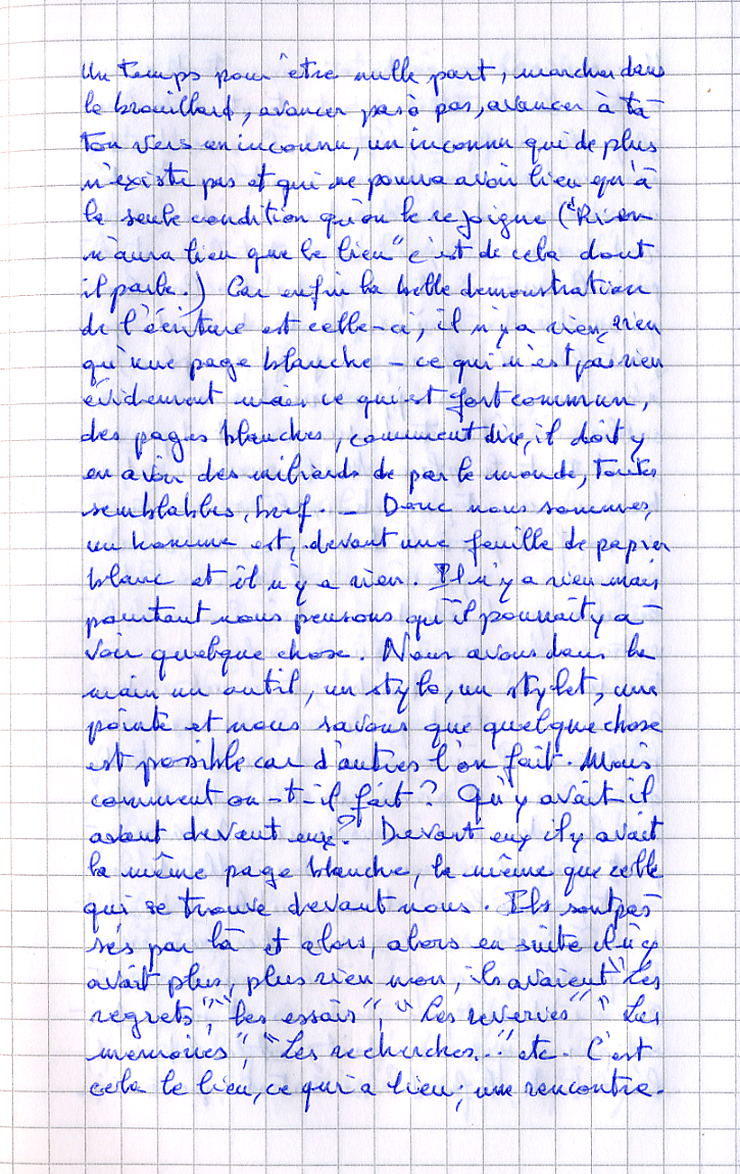 Un temps pour être nulle part, marcher dans
le brouillard, avancer pas à pas, avancer à tâ-
ton vers un inconnu, un inconnu qui de plus
n'existe pas et qui ne pourra avoir lieu qu'à
la seule condition qu'on le rejoigne ("Rien
n'aura lieu que le lieu" c'est de cela dont
il parle.) Car enfin la belle demonstration
de l'écriture est celle-ci, il n'y a rien, rien
qu'une page blanche - ce qui n'est pas rien
évidemment mais ce qui est fort commun,
des pages blanches, comment dire, il doit y
en avoir des milliards de par le monde, toutes
semblables, bref. - Donc nous sommes,
un homme est, devant une feuille de papier
blanc et il n'y a rien. Il n'y a rien mais
pourtant nous pensons qu'il pourrait y a-
voir quelque chose. Nous avons dans la
main un outil, un stylo, un stylet, une
pointe et nous savons que quelque chose
est possible car d'autres l'on fait. Mais
comment on-t-il fait? Qu'y avait il
avant devant eux? Devant eux il y avait
la même page blanche, la même que celle
qui se trouve devant nous. Ils sont pas-
sés par là et alors, alors en suite il n'y
avait plus, plus rien non, ils avaient "Les
regrets", "Les essais", "Les reveries" "Les
memoires", "Les recherches..." etc. C'est
cela le lieu, ce qui a lieu; une rencontre.